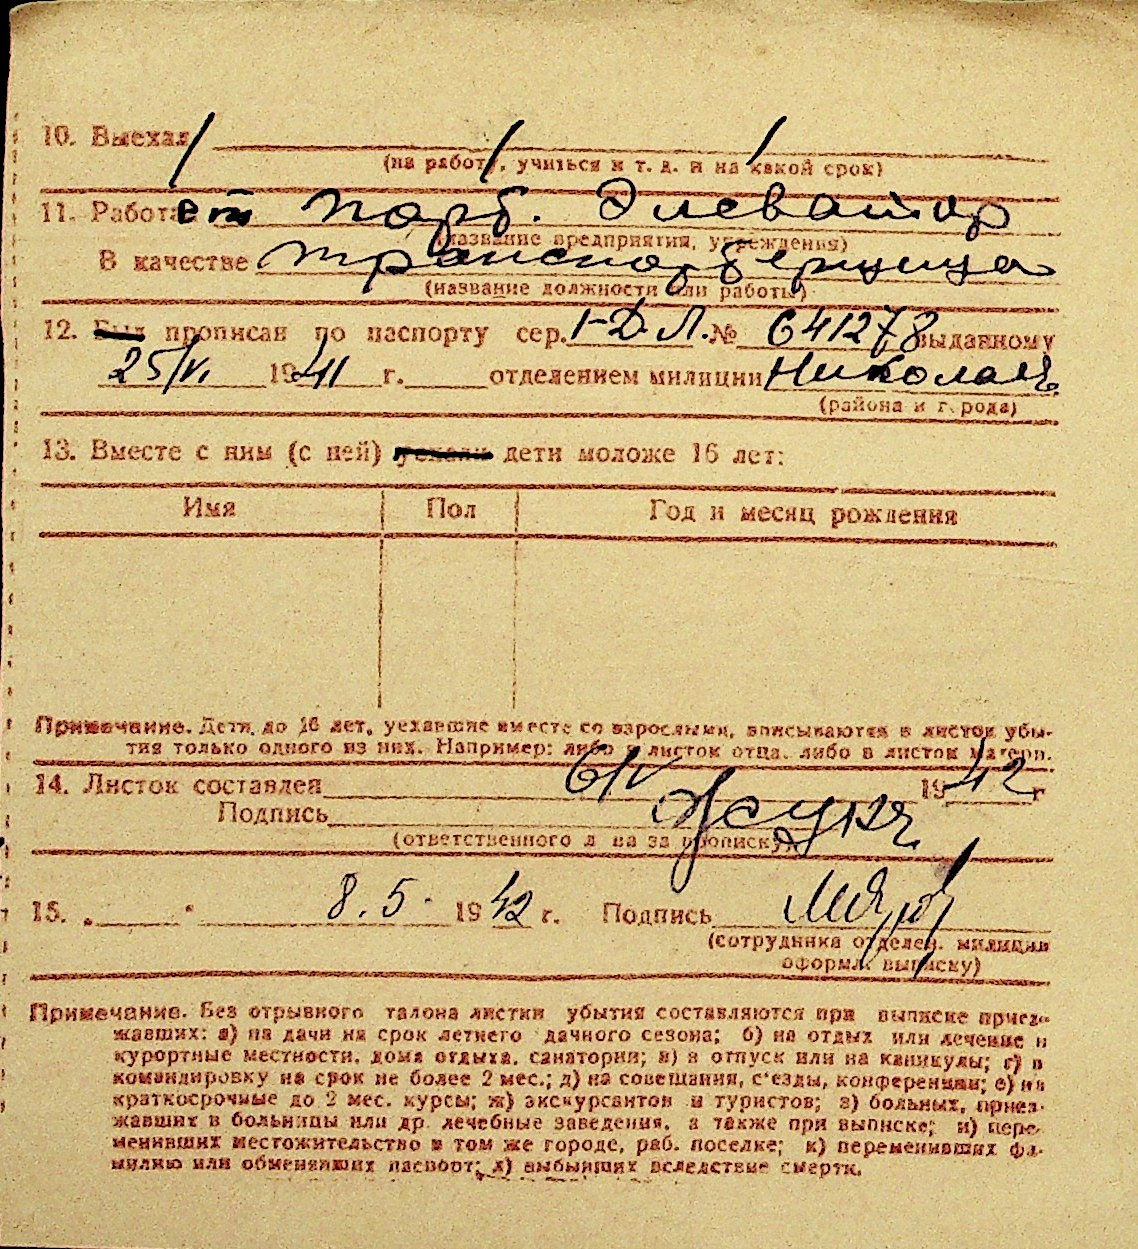 10. Выехал
(на работу, учиться и т. д. и на какой срок)
11. Работает Торг. Элеватор
(название предприятия, учреждения)
В качестве транспортерщица
(название должности или работы)
12. Был прописан по паспорту сер. I-ДЛ. № 641278 выданному
25/VI 1941 г. отделением милиции Николаев.
(района и города)
13. Вместе с ним (с ней) уехали дети моложе 16 лет:
Имя Пол Год и месяц рождения
Примечание. Дети до 16 лет, уехавшие вместе со взрослыми, вписываются в листок убы-
тия только одного из них. Например: либо в листок отца, либо в листок матери.
14. Листок составлен 6/V 1942 г.
Подпись
(ответственного л ва за прописку)
15. „ " 8.5. 1942 г. Подпись
(сотрудника отделен. милиции
оформл. выписку)
Примечание. Без отрывного талона листки убытия составляются при выписке приез-
жавших: а) на дачи на срок летнего дачного сезона; б) на отдых или лечение в
курортные местности, дома отдыха, санатории; в) в отпуск или на каникулы; г) в
командировку на срок не более 2 мес.; д) на совещания, с'езды, конференции; е) на
краткосрочные до 2 мес. курсы; ж) экскурсантов и туристов; з) больных, приез-
жавших в больницы или др. лечебные заведения, а также при выписке; и) пере-
менивших местожительство в том же городе, раб. поселке; к) переменивших фа-
милию или обменявших паспорт; л) выбывших вследствие смерти.